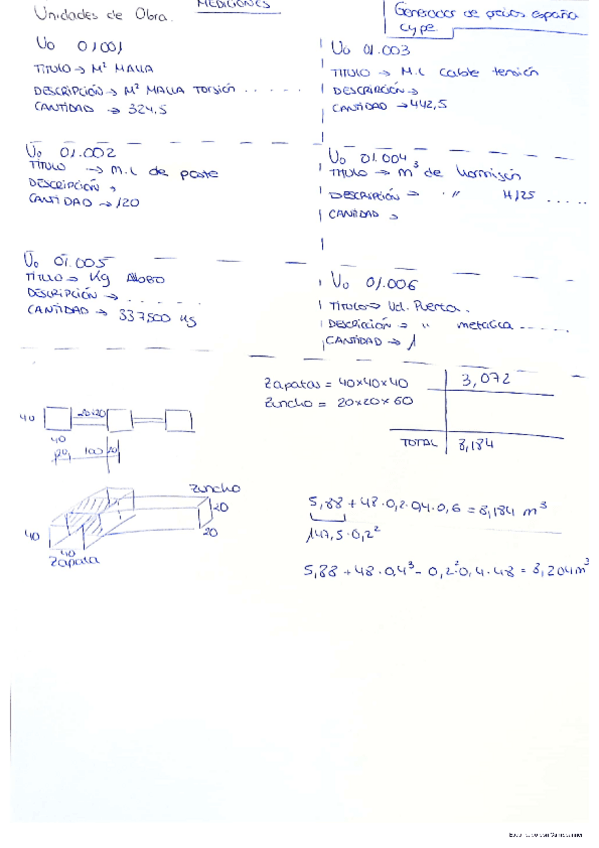 MEDICIONES
Unidades de Obra.
Generador de precios españa
cype
Uo 01001
TITULO → M² MALLA
DESCRIPCIÓN → M² MALLA TORSIÓN . . . . . .
CANTIDAD → 324,5
Uo 01.003
TITULO → M.L Cable tensión
DESCRIPCIÓN →
CANTIDAD → 442,5
Uo 01.002
TITULO → M.L de poste
DESCRIPCIÓN →
CANTIDAD → 120
Uo 01.004
TITULO → m³ de hormigón
DESCRIPCIÓN → " H/25 . . . . .
CANTIDAD →
Uo 01.005
TITULO → Kg
DESCRIPCIÓN → . . . . .
CANTIDAD → 337500 Kg
Uo 01.006
TITULO → Ud. Puerta.
DESCRIPCIÓN → " metalica . . . . .
CANTIDAD → 1
Zapatas = 40x40x40 3,072
Zuncho = 20x20x60
TOTAL 8,184
40 20·20
40
20 100 20
Zuncho
20
20
40
40
Zapata
5,88 + 48·0,2·0,4·0,6 = 8,184 m³
147,5·0,2²
5,88 + 48·0,4³ - 0,2²·0,4·48 = 8,204m³